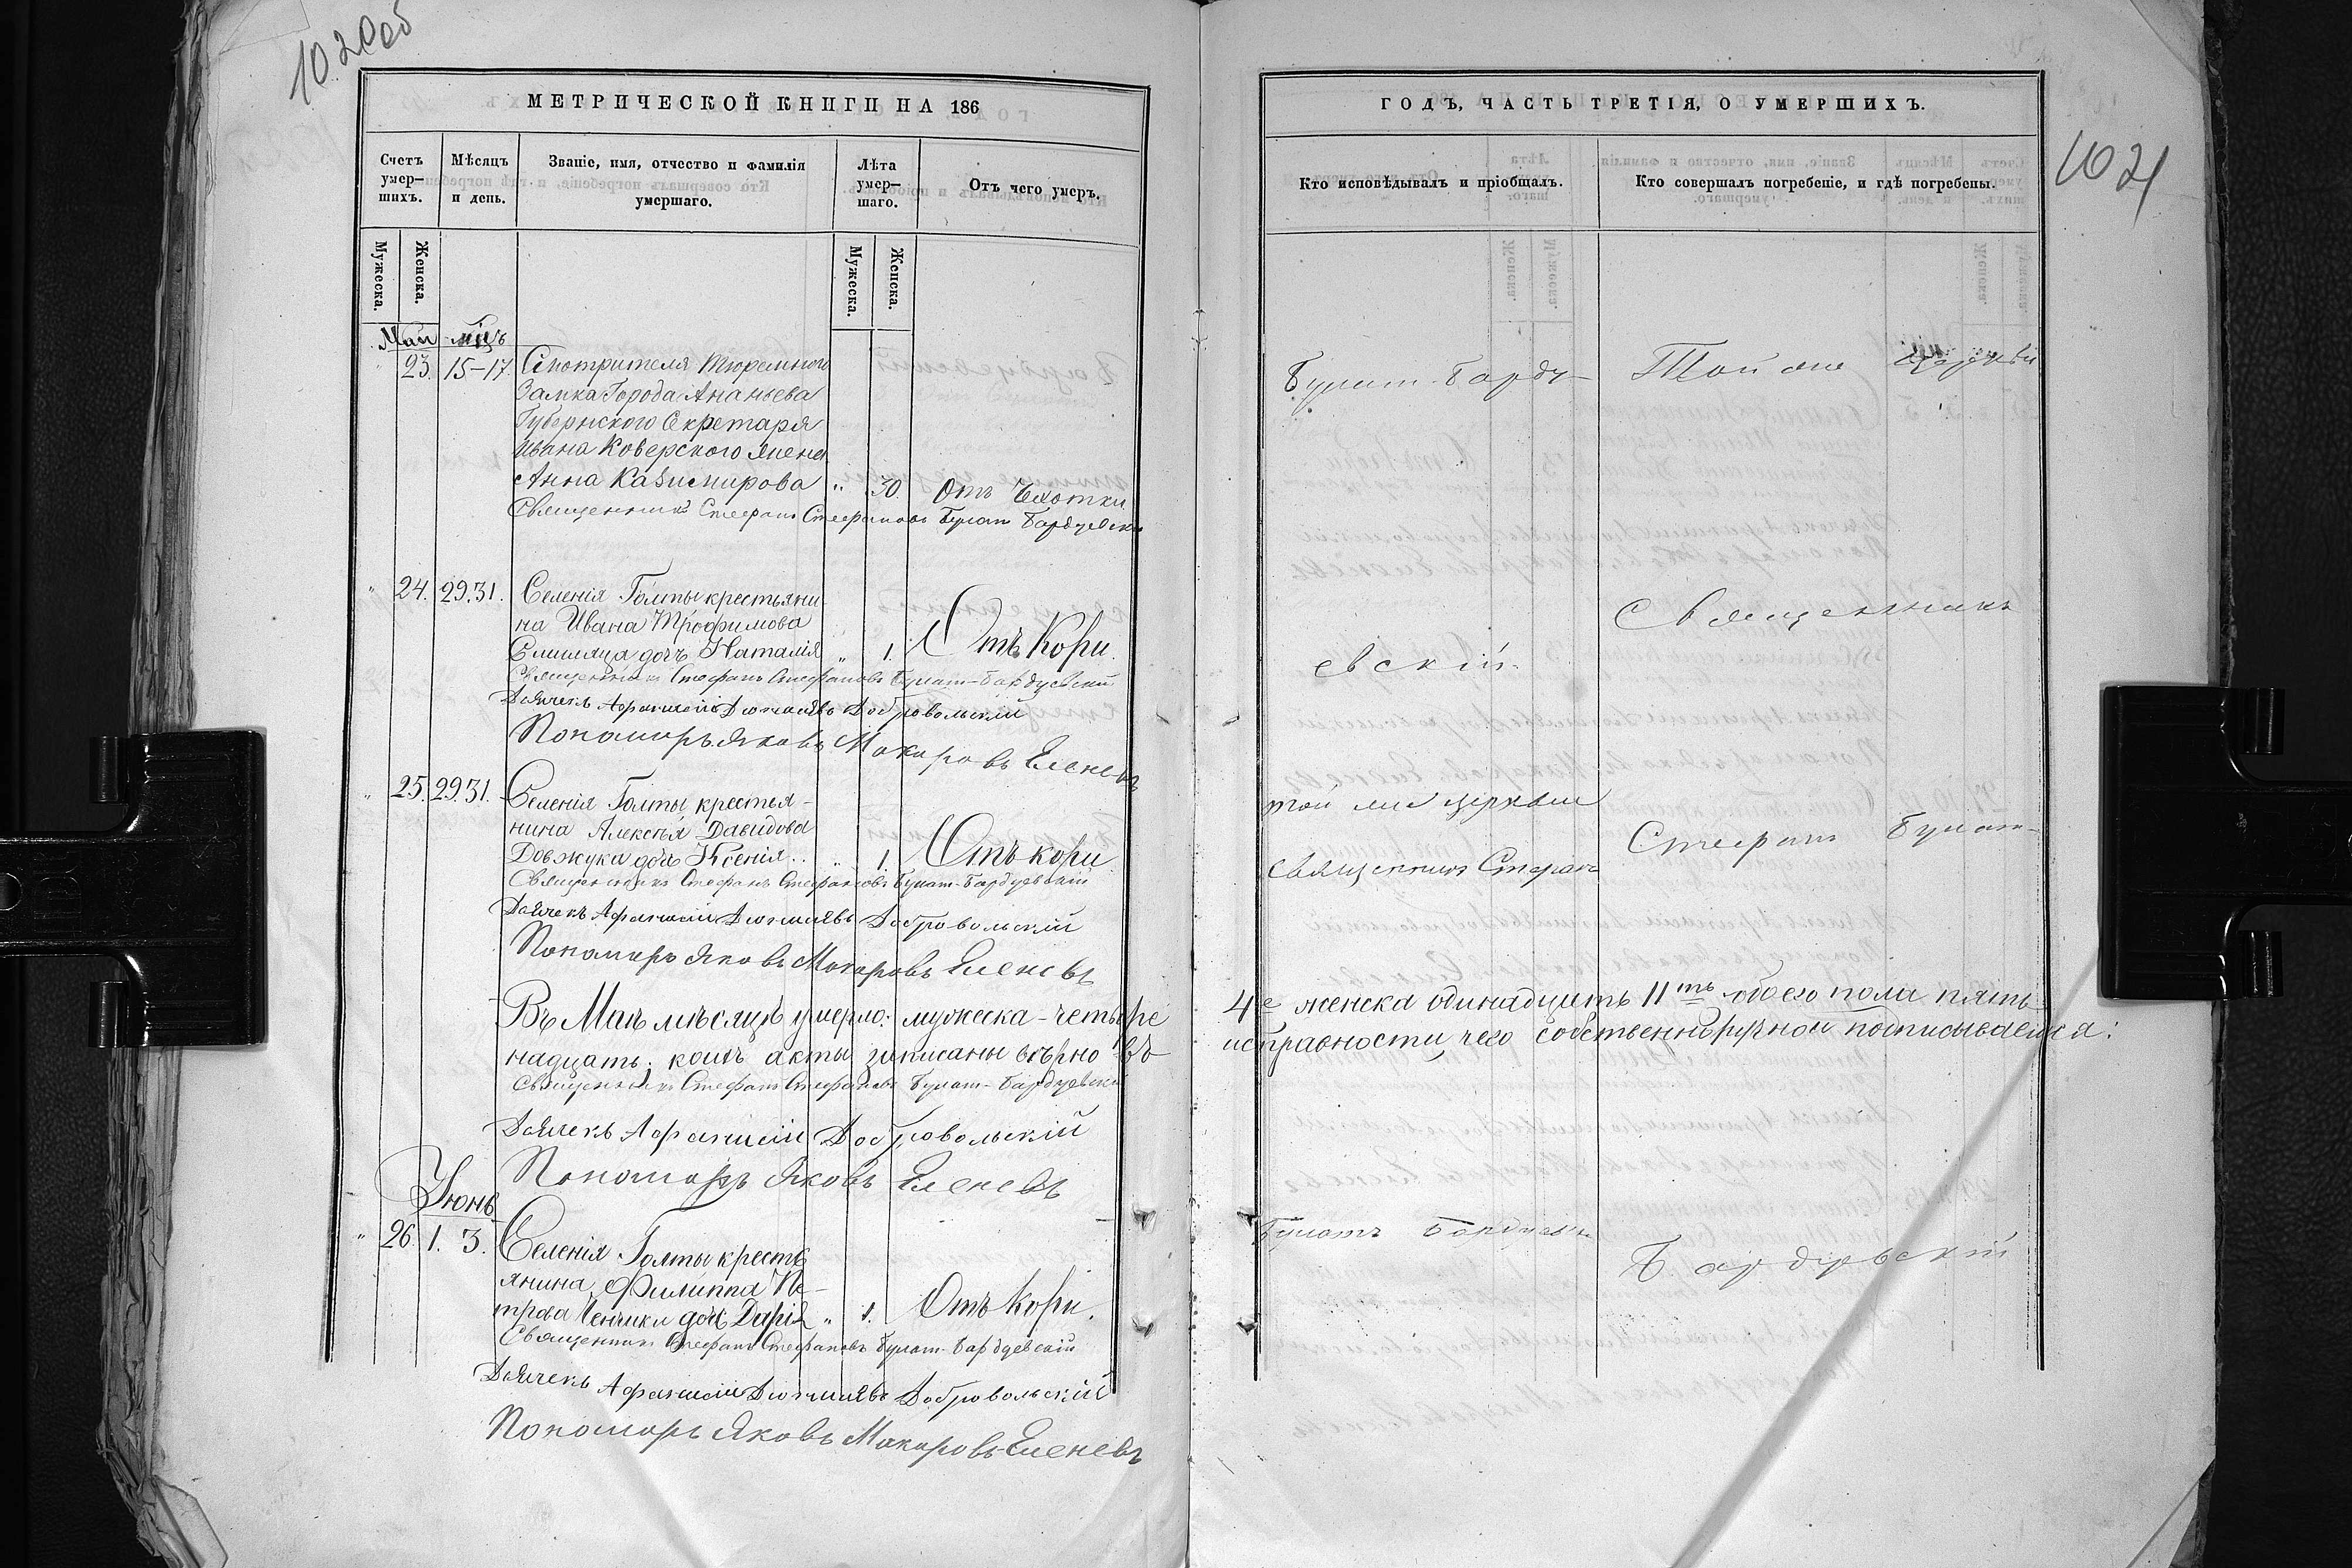 1020об
МЕТРИЧЕСКОЙ КНИГИ НА 186
Счетъ умер-
шихъ.
Мѣсяцъ
и день.
Званіе, имя, отчество и фамилія
умершаго.
Лѣта
умер-
шаго.
Отъ чего умеръ.
Мужеска.
Женска.
Мужеска.
Женска.
Май мцъ
23. 15-17. Смотрителя Тюремного
Замка Города Ананьева
Губернского Секретаря
Ивана Коверского жена
Анна Казимирова " 30. Отъ Чахотки
Священникъ Стефанъ Стефановъ Булат Бардуевскій
" 24. 29.31. Селенія Голты крестьяни-
на Ивана Трофимова
дочъ Наталія " 1. Отъ Кори.
Священникъ Стефанъ Стефановъ Булат-Бардуевскій
Дьячекъ Афанасій Добровольскій
Пономарь Яковъ Макаровъ Еленевъ
" 25. 29.31. Селенія Голты крестья-
нина Алексѣя Давидова
Довжука дочъ Ксенія.. " 1. Отъ кори
Священникъ Стефанъ Стефановъ Булат-Бардуевскій
Дьячекъ Афанасій Добровольскій
Пономарь Яковъ Макаровъ Еленевъ
Въ Маѣ мѣсяцѣ умерло: мужеска-четыре
надцать; коихъ акты записаны вѣрно въ
Священникъ Стефанъ Стефановъ Булат-Бардуевскій
Дьячекъ Афанасій Добровольскій
Пономарь Яковъ Еленевъ
Іюнь
" 26. 1. 3. Селенія Голты кресть
янина Филиппа Пе-
трова Ченчика дочъ Дарія " 1. Отъ Кори.
Священникъ Стефанъ Стефановъ Булат-Бардуевскій
Дьячекъ Афанасій Добровольскій
Пономарь Яковъ Макаровъ Еленевъ
ГОДЪ, ЧАСТЬ ТРЕТІЯ, О УМЕРШИХЪ.
1021
Кто исповѣдывалъ и пріобщалъ.
Кто совершалъ погребеніе, и гдѣ погребены.
Булат-Барду-
Той же Церкви
Священникъ
евскій.
той же церкви
Стефанъ Булат-
священникъ Стефанъ
4е женска одинадцать 11ть обоего пола пять-
исправности чего собственноручной подписываемся:
Булатъ Бардуев
Бардуевскій